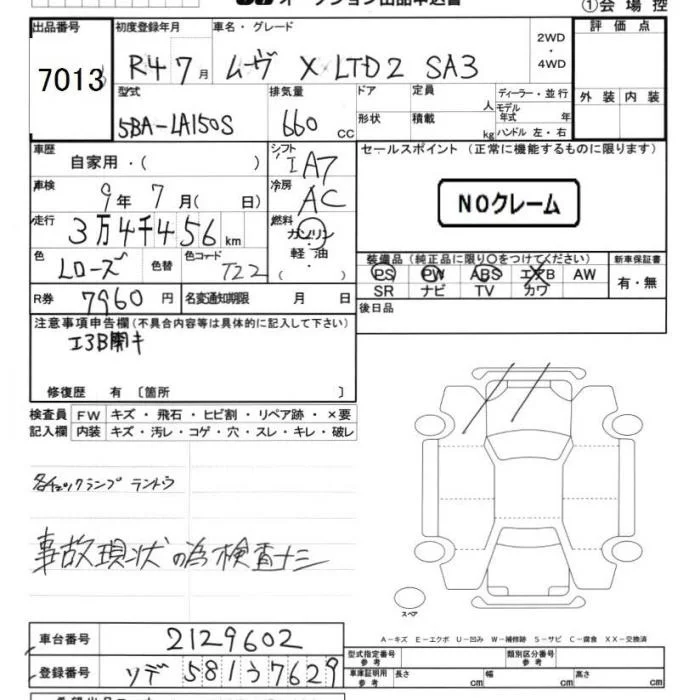 オークション出品申込書
①会場控
出品番号 初度登録年月 車名・グレード 2WD ・ 4WD 評価点
7013 R4 7月 ムーヴ X LTD2 SA3
型式 排気量 ドア 定員 人 ディーラー・並行 外装 内装
5BA-LA150S 660 cc 形状 積載 kg モデル年式 年 ハンドル 左・右
車歴 自家用・( ) シフト IAT セールスポイント (正常に機能するものに限ります)
車検 9年 7月( 日) 冷房 AC NOクレーム
走行 3万4千456km 燃料 ガソリン・軽油・( )
色 Lローズ 色替 色コード T22 装備品(純正品に限り○をつけてください) 新車保証書
PS PW ABS エアB AW 有・無
SR ナビ TV カワ
R券 7960円 名変通知期限 月 日 後日品
注意事項申告欄(不具合内容等は具体的に記入して下さい)
エアB開キ
修復歴 有 〔箇所 〕
検査員 FW キズ・飛石・ヒビ割・リペア跡・×要
記入欄 内装 キズ・汚レ・コゲ・穴・スレ・キレ・破レ
各チェックランプ テントウ
事故現状の為検査ナシ
スペア
A-キズ E-エクボ U-凹み W-補修跡 S-サビ C-腐食 XX-交換済
車台番号 2129602 型式指定番号 参考 類別区分番号 参考
登録番号 ソデ 581う7629 車庫証明用 参考 長さ cm 幅 cm 高さ cm